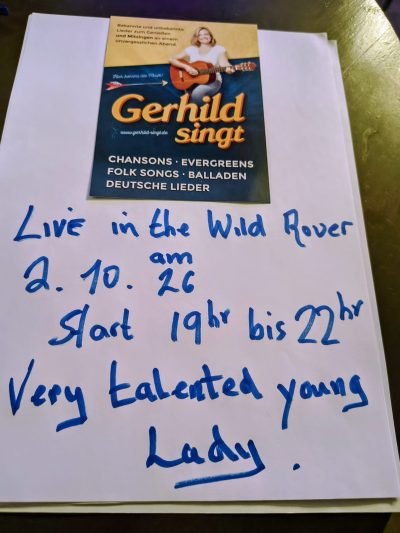 Bekannte und unbekannte
Lieder zum Genießen
und Mitsingen an einem
unvergesslichen Abend.
Gerhild
singt
www.gerhild-singt.de
CHANSONS · EVERGREENS
FOLK SONGS · BALLADEN
DEUTSCHE LIEDER
Live in the Wild Rover
am
2. 10. 26
Start 19hr bis 22hr
Very talented young
Lady.